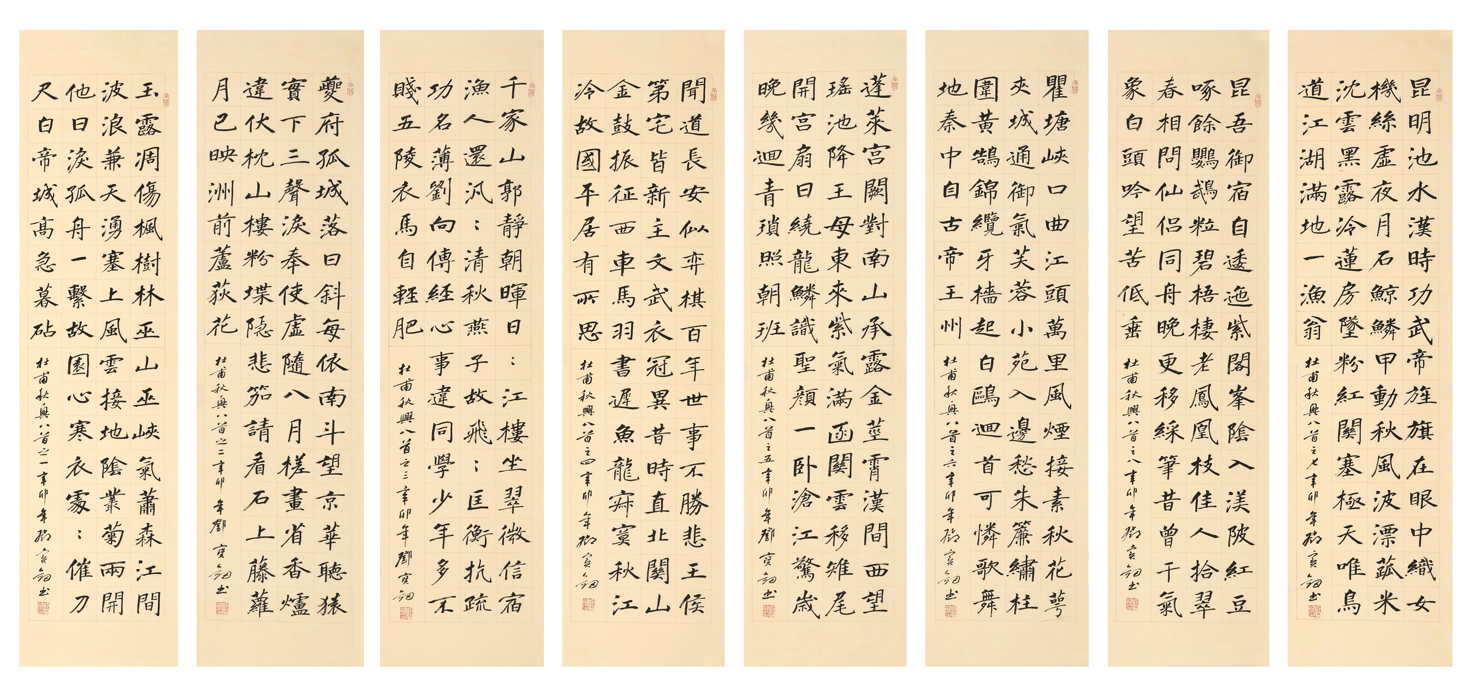 玉露凋傷楓樹林巫山巫峽氣蕭森江間
波浪兼天湧塞上風雲接地陰叢菊兩開
他日淚孤舟一繫故園心寒衣處：催刀
尺白帝城高急暮砧
杜甫秋興八首之一辛卯年鄧寶劍書
夔府孤城落日斜每依南斗望京華聽猿
實下三聲淚奉使虛隨八月槎畫省香爐
違伏枕山樓粉堞隱悲笳請看石上藤蘿
月已映洲前蘆荻花
杜甫秋興八首之二辛卯年鄧寶劍書
千家山郭靜朝暉日：江樓坐翠微信宿
漁人還汎：清秋燕子故飛：匡衡抗疏
功名薄劉向傳經心事違同學少年多不
賤五陵衣馬自輕肥
杜甫秋興八首之三辛卯年鄧寶劍
聞道長安似弈棋百年世事不勝悲王侯
第宅皆新主文武衣冠異昔時直北關山
金鼓振征西車馬羽書遲魚龍寂寞秋江
冷故國平居有所思
杜甫秋興八首之四辛卯年鄧寶劍
蓬萊宮闕對南山承露金莖霄漢間西望
瑤池降王母東來紫氣滿函關雲移雉尾
開宮扇日繞龍鱗識聖顏一臥滄江驚歲
晚幾迴青瑣照朝班
杜甫秋興八首之五辛卯年鄧寶劍書
瞿塘峽口曲江頭萬里風煙接素秋花萼
夾城通御氣芙蓉小苑入邊愁朱簾繡柱
圍黃鵠錦纜牙檣起白鷗迴首可憐歌舞
地秦中自古帝王州
杜甫秋興八首之六辛卯年鄧寶劍書
昆吾御宿自逶迤紫閣峯陰入渼陂紅豆
啄餘鸚鵡粒碧梧棲老鳳凰枝佳人拾翠
春相問仙侶同舟晚更移綵筆昔曾干氣
象白頭吟望苦低垂
杜甫秋興八首之八辛卯年鄧寶劍書
昆明池水漢時功武帝旌旗在眼中織女
機絲虛夜月石鯨鱗甲動秋風波漂菰米
沈雲黑露冷蓮房墜粉紅關塞極天唯鳥
道江湖滿地一漁翁
杜甫秋興八首之七辛卯年鄧寶劍書